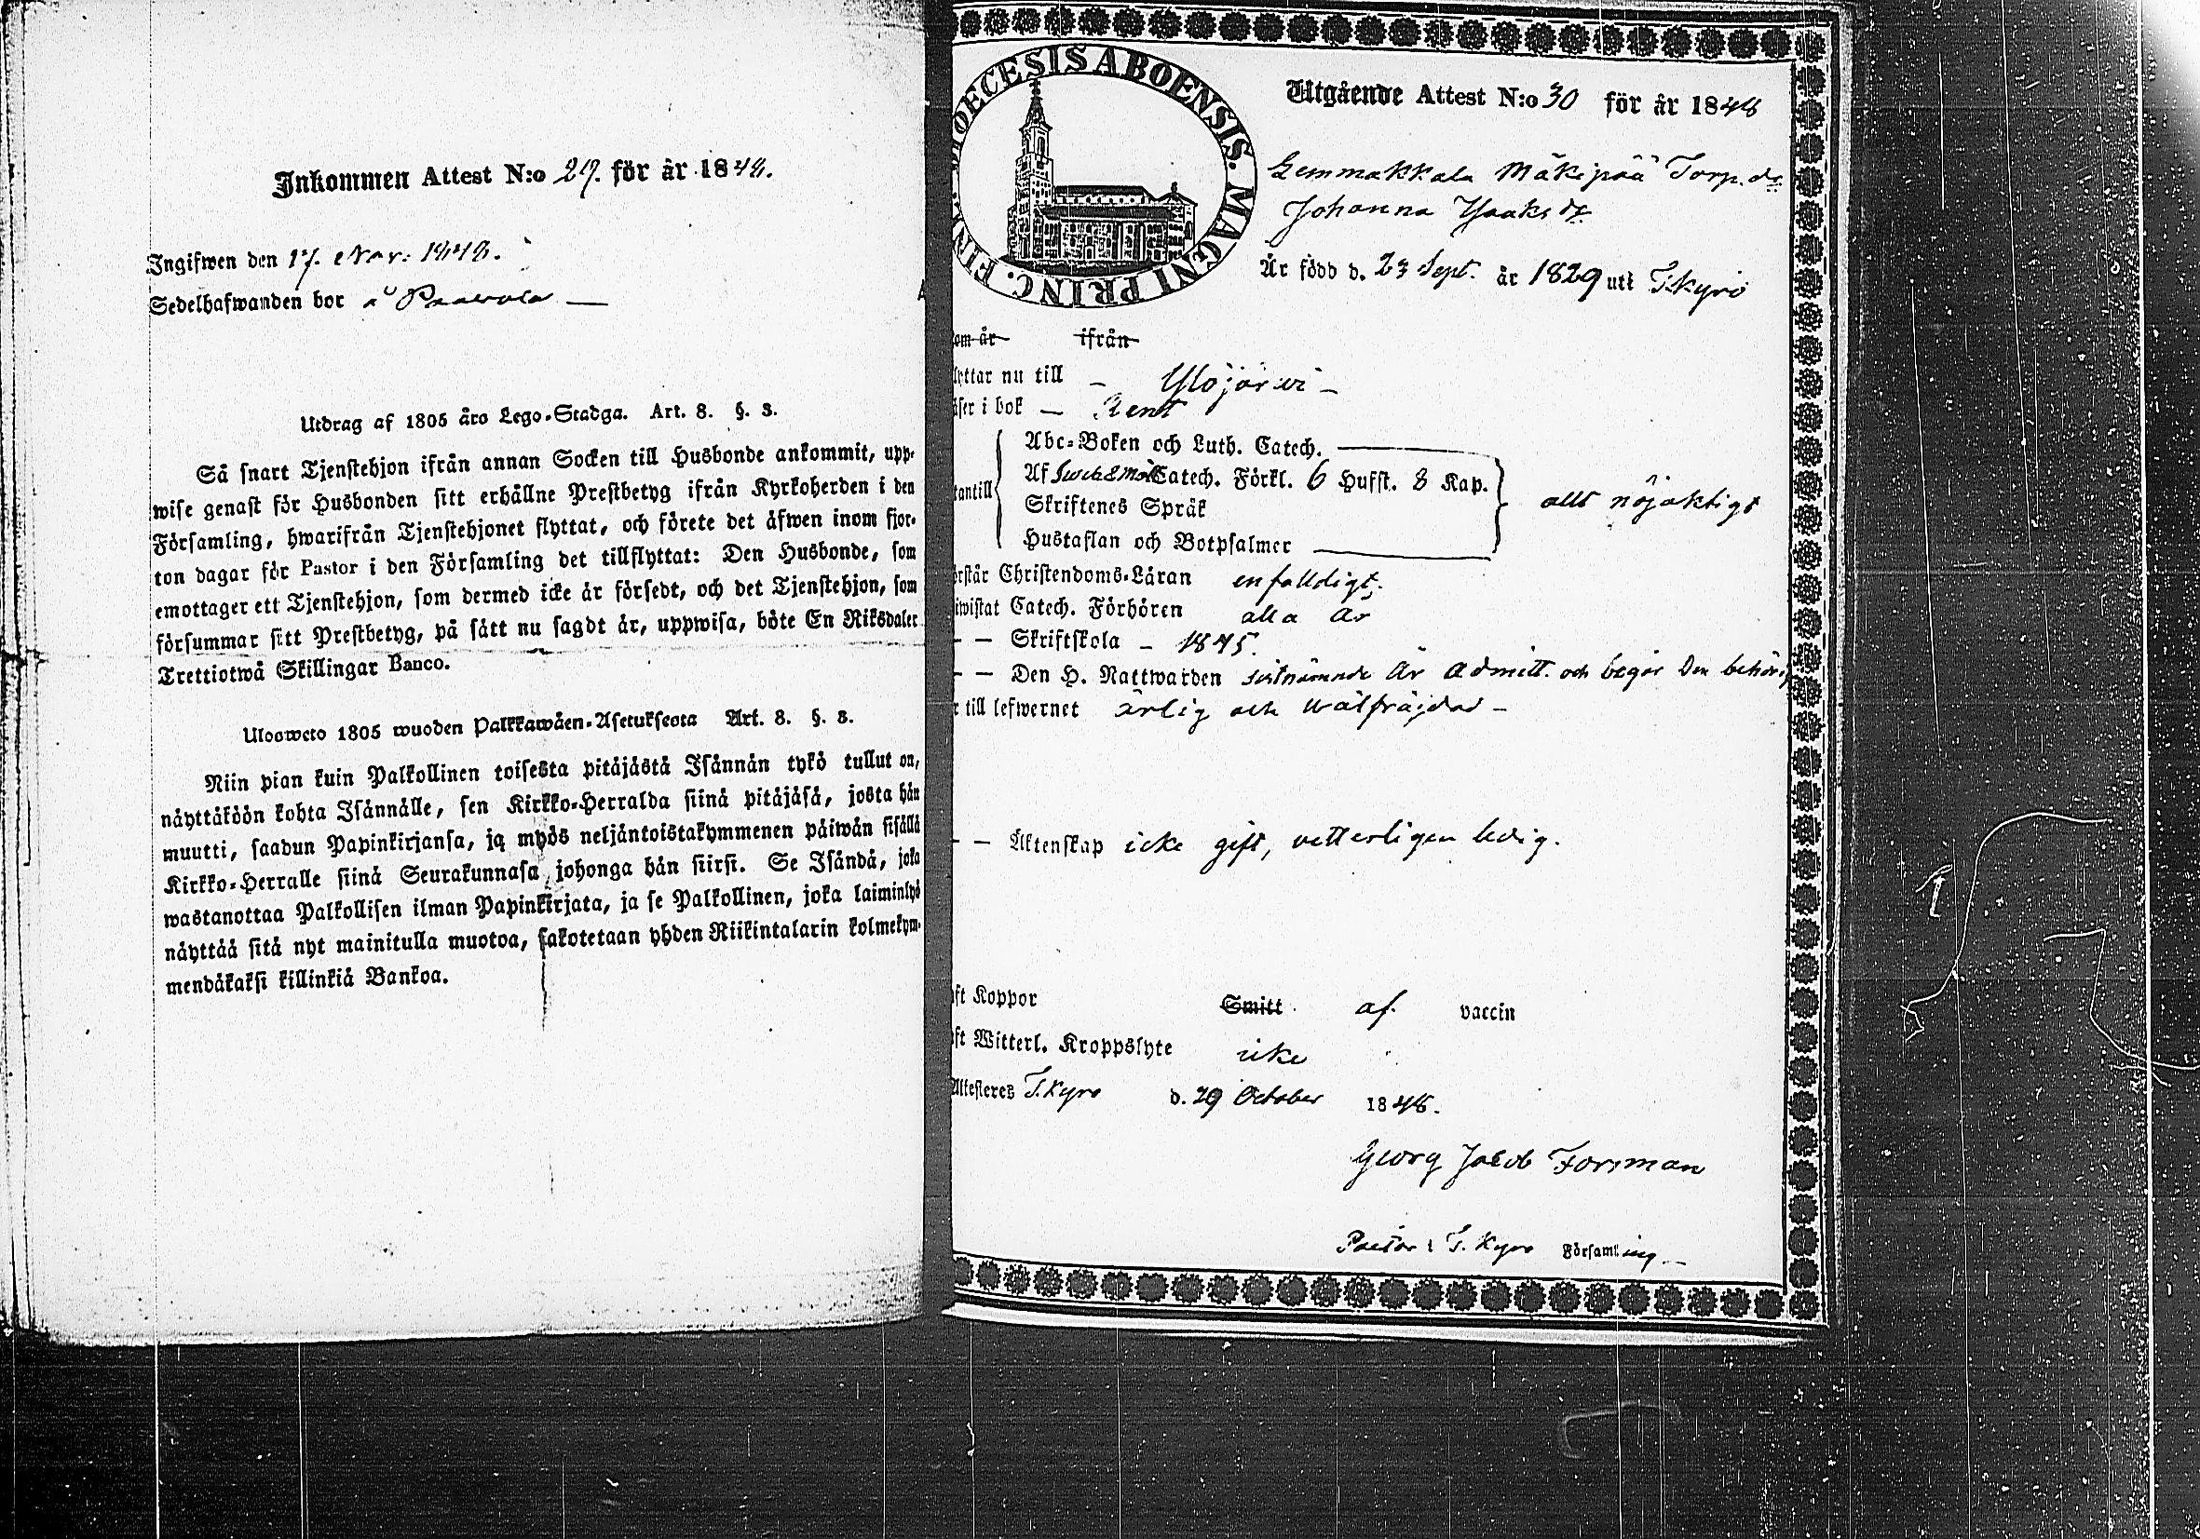 Inkommen Attest N:o 29. för år 1848.
Ingifwen den 17. Nov: 1848.
Sedelhafwanden bor å Paavola —
Utdrag af 1805 års Lego-Stadga. Art. 8. §. 3.
Så snart Tjenstehjon ifrån annan Socken till Husbonde ankommit, upp-
wise genast för Husbonden sitt erhållne Prestbetyg ifrån Kyrkoherden i den
Församling, hwarifrån Tjenstehjonet flyttat, och förete det äfwen inom fjor-
ton dagar för Pastor i den Församling det tillflyttat: Den Husbonde, som
emottager ett Tjenstehjon, som dermed icke är försedt, och det Tjenstehjon, som
försummar sitt Prestbetyg, på sätt nu sagdt är, uppwisa, böte En Riksdaler
Trettiotwå Skillingar Banco.
Ulosweto 1805 wuoden Palkkawäen-Asetuksesta Art. 8. §. 3.
Niin pian kuin Palkollinen toisesta pitäjästä Isännän tykö tullut on,
näyttäköön kohta Isännälle, sen Kirkko-Herralda siinä pitäjäsä, josta hän
muutti, saadun Papinkirjansa, ja myös neljäntoistakymmenen päiwän sisällä
Kirkko-Herralle siinä Seurakunnasa johonga hän siirsi. Se Isändä, joka
wastanottaa Palkollisen ilman Papinkirjata, ja se Palkollinen, joka laiminlyö
näyttää sitä nyt mainitulla muotoa, sakotetaan yhden Riikintalarin kolmekym-
mendäkaksi killinkiä Bankoa.
DIOECESIS ABOENSIS. MAGNI PRINC. FINL.
Utgående Attest N:o 30 för år 1848
Gemmakkala Mäkipää Torp. dr
Johanna Isaks dr
Är född d. 23 Sept. år 1829 uti T.kyrö
om år ifrån
lyttar nu till — Ylöjärvi —
äser i bok — Rent
Abc-Boken och Luth. Catech.
Af Catech. Förkl. 6 Hufst. 8 Kap.
tantill Skriftenes Språk allt nöjaktigt
Hustaflan och Botpsalmer
örstår Christendoms-Läran enfalldigt.
iwistat Catech. Förhören alla år
— — Skriftskola — 1845.
— — Den H. Nattwarden sistnämnde år admitt. och begår Den behör.
r till lefwernet ärlig och wälfräjdad —
— — Äktenskap icke gift, vetterligen ledig.
ft Koppor Smitt af. vaccin
ft Witterl. Kroppslyte icke
Attesteres T.kyro d. 29 October 1848.
Georg Jacob Forsman
Pastor i T. Kyro Församling —